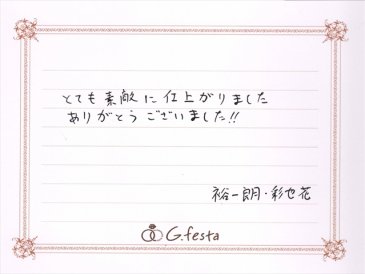 とても素敵に仕上がりました
ありがとうございました!!
裕一朗・彩也花
G.festa